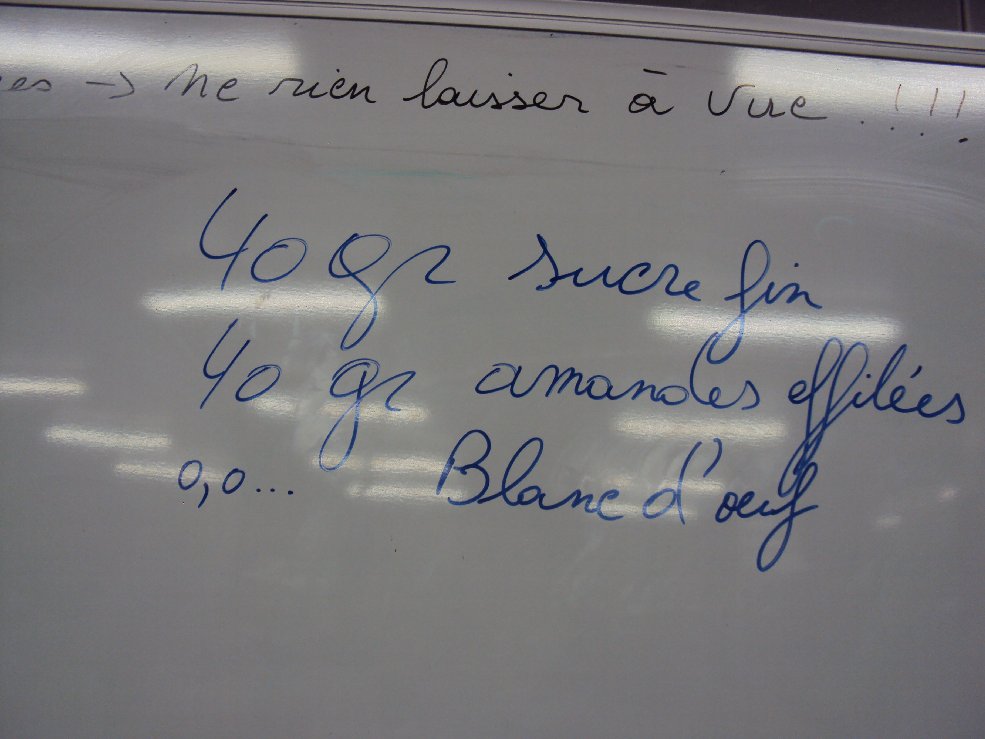 es → ne rien laisser à vue !!!!
40 gr sucre fin
40 gr amandes effilées
0,0... Blanc d'oeuf